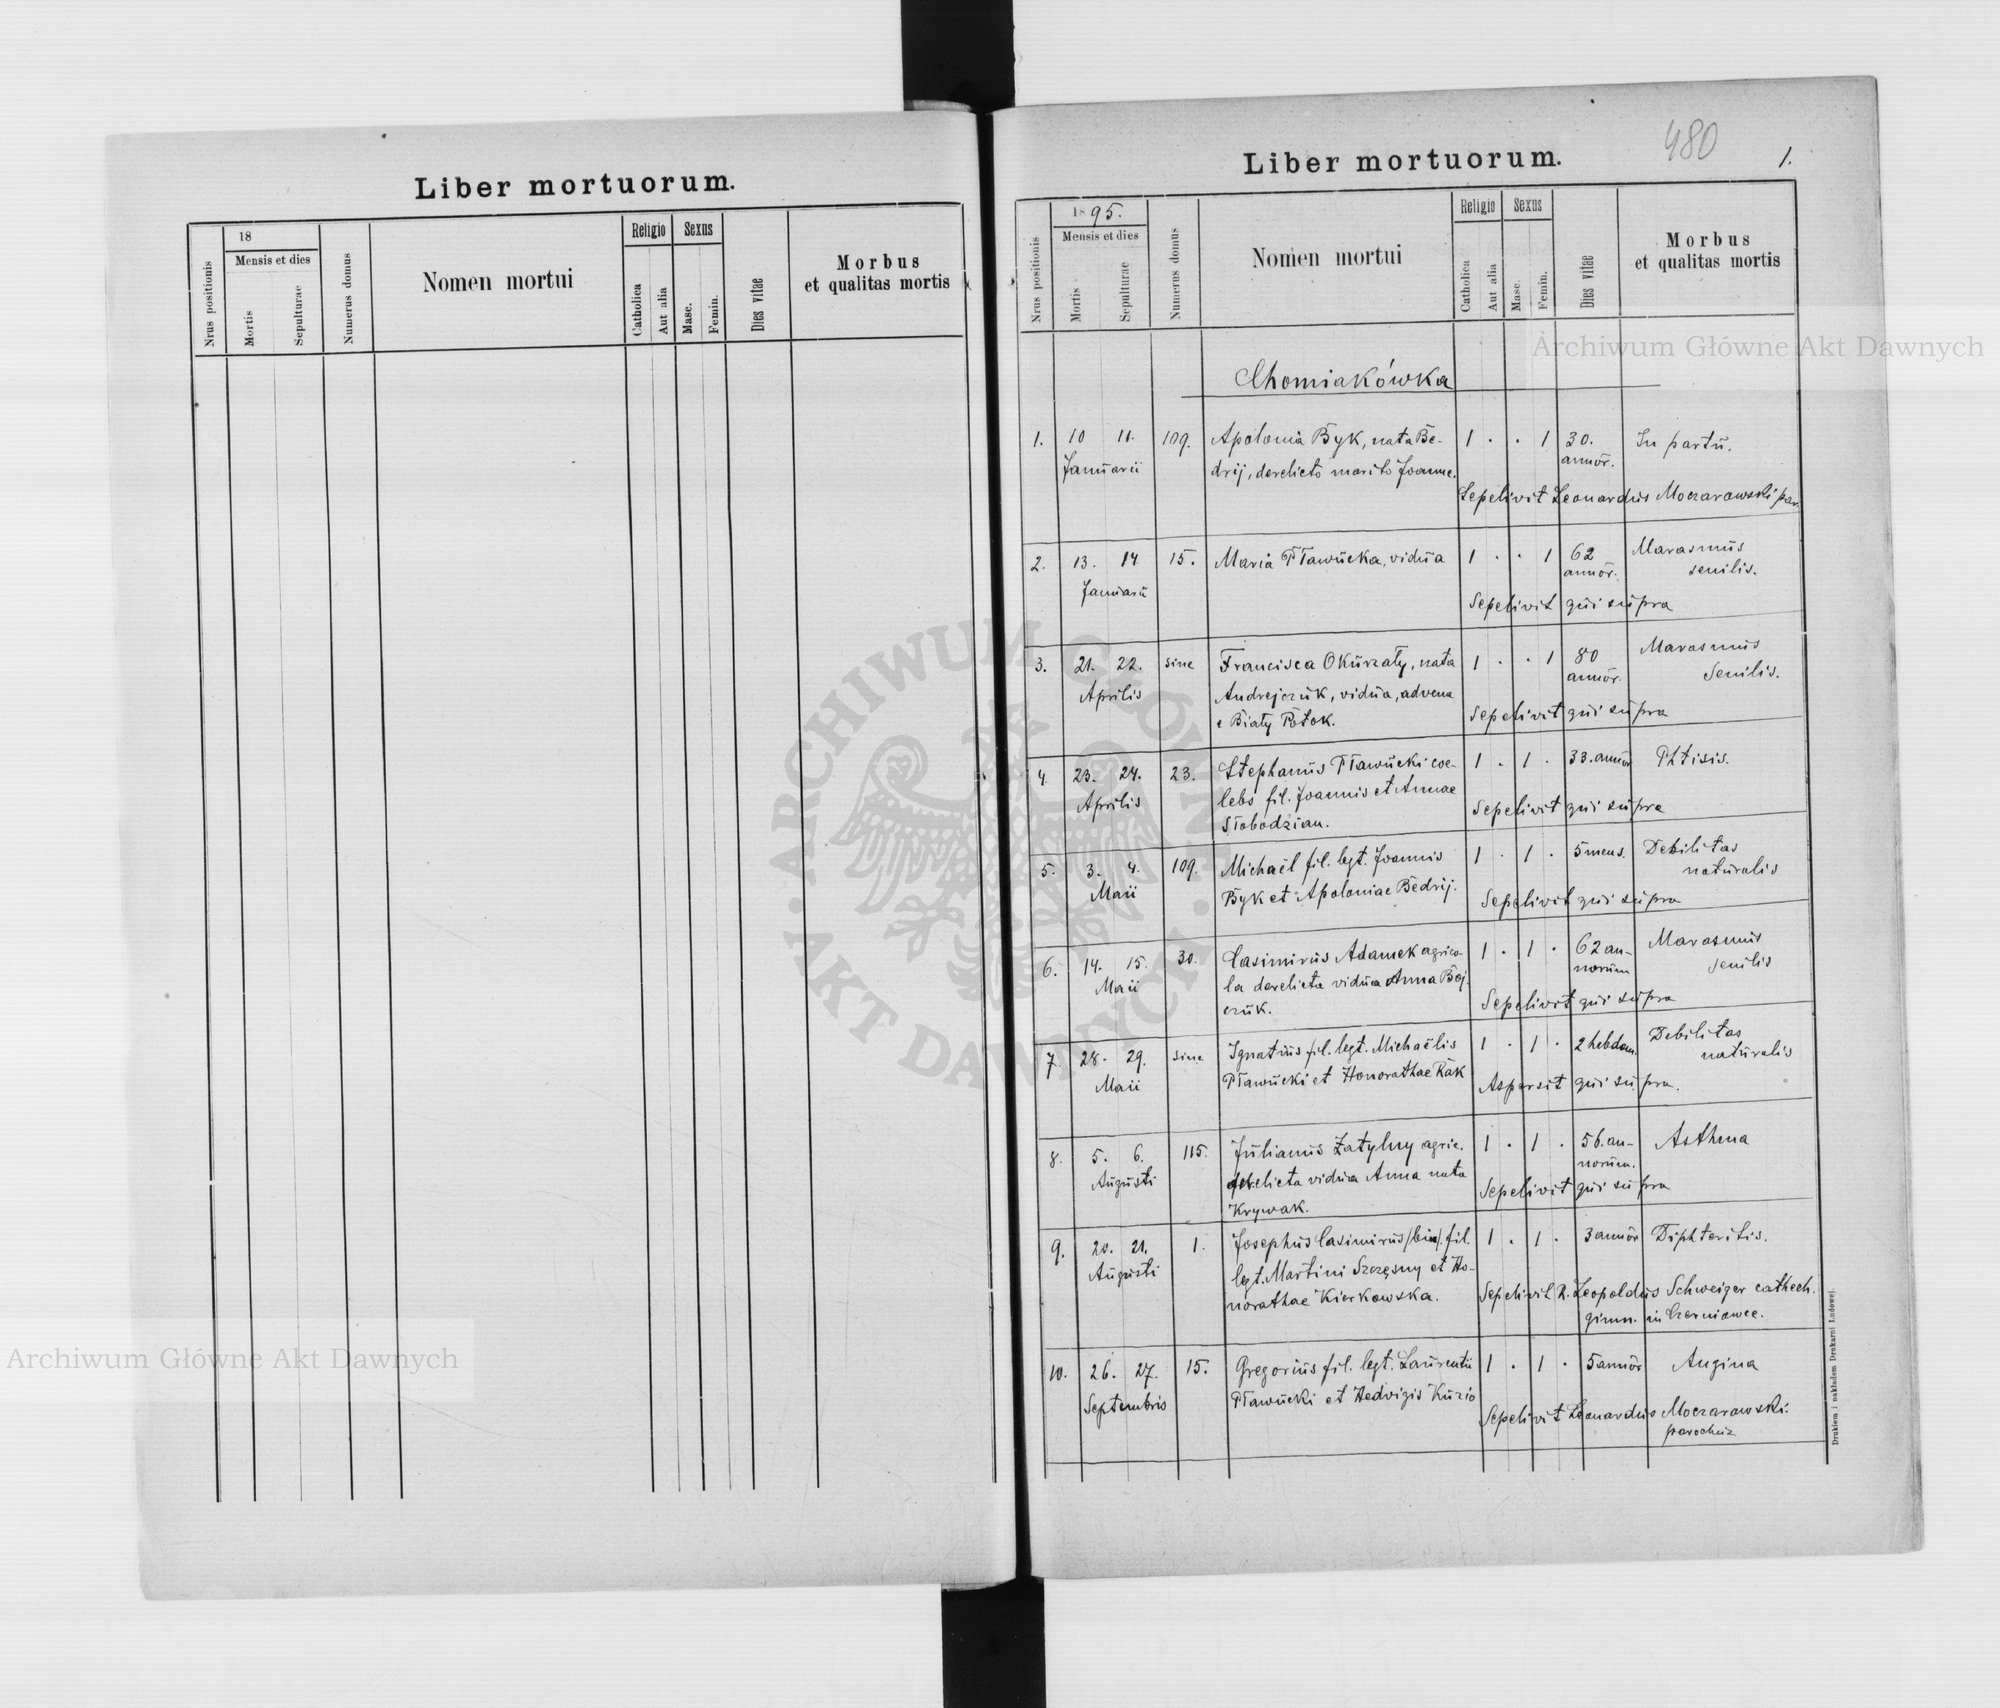 Liber mortuorum.
Nrus positionis
18
Mensis et dies
Mortis
Sepulturae
Numerus domus
Nomen mortui
Religio
Catholica
Aut alia
Sexus
Masc.
Femin.
Dies vitae
Morbus
et qualitas mortis
480
1.
Liber mortuorum.
Nrus positionis
1895.
Mensis et dies
Mortis
Sepulturae
Numerus domus
Nomen mortui
Religio
Catholica
Aut alia
Sexus
Masc.
Femin.
Dies vitae
Morbus
et qualitas mortis
Chomiakówka
1. 10 11. 109. Apolonia Byk, nata Be- 1 . . 1 30. In partu.
Januarii drij, derelicto marito Joanne. annor.
Sepelivit Leonardus Moczarowski par.
2. 13. 14 15. Maria Pławucka, vidua 1 . . 1 62 Marasmus
Januarii annor. senilis.
Sepelivit qui supra
3. 21. 22. sine Francisca Okurzaty, nata 1 . . 1 80 Marasmus
Aprilis Andrejczuk, vidua, advena annor. Senilis.
e Biały Potok. Sepelivit qui supra
4. 23. 24. 23. Stephanus Pławucki coe- 1 . 1 . 33. annor Phtisis.
Aprilis lebs fil. Joannis et Annae
Słobodzian. Sepelivit qui supra
5. 3. 4. 109. Michaël fil. legt. Joannis 1 . 1 . 5 mens. Debilitas
Maii Byk et Apoloniae Bedrij. naturalis
Sepelivit qui supra
6. 14. 15. 30. Casimirus Adamek agrico- 1 . 1 . 62 an- Marasmus
Maii la derelicta vidua Anna Boj- norum senilis
czuk. Sepelivit qui supra
7. 28. 29. sine Ignatius fil. legt. Michaëlis 1 . 1 . 2 hebdom. Debilitas
Maii Pławucki et Honorathae Rak naturalis
Aspersit qui supra.
8. 5. 6. 115. Julianus Zatylny agric. 1 . 1 . 56. an- Asthma
Augusti derelicta vidua Anna nata norum.
Krywak. Sepelivit qui supra
9. 20. 21. 1. Josephus Casimirus /bin/ fil. 1 . 1 . 3 annor Diphteritis.
Augusti legt. Martini Szczęsny et Ho-
norathae Kierkowska. Sepelivit R. Leopoldus Schweiger cathech.
gimn. in Czerniowce.
10. 26. 27. 15. Gregorius fil. legt. Laurentii 1 . 1 . 5 annor Angina
Septembris Pławucki et Hedvigis Kuzio
Sepelivit Leonardus Moczarowski.
parochus
Drukiem i nakładem Drukarni Ludowej.
Archiwum Główne Akt Dawnych
Archiwum Główne Akt Dawnych
ARCHIWUM GŁÓWNE
AKT DAWNYCH